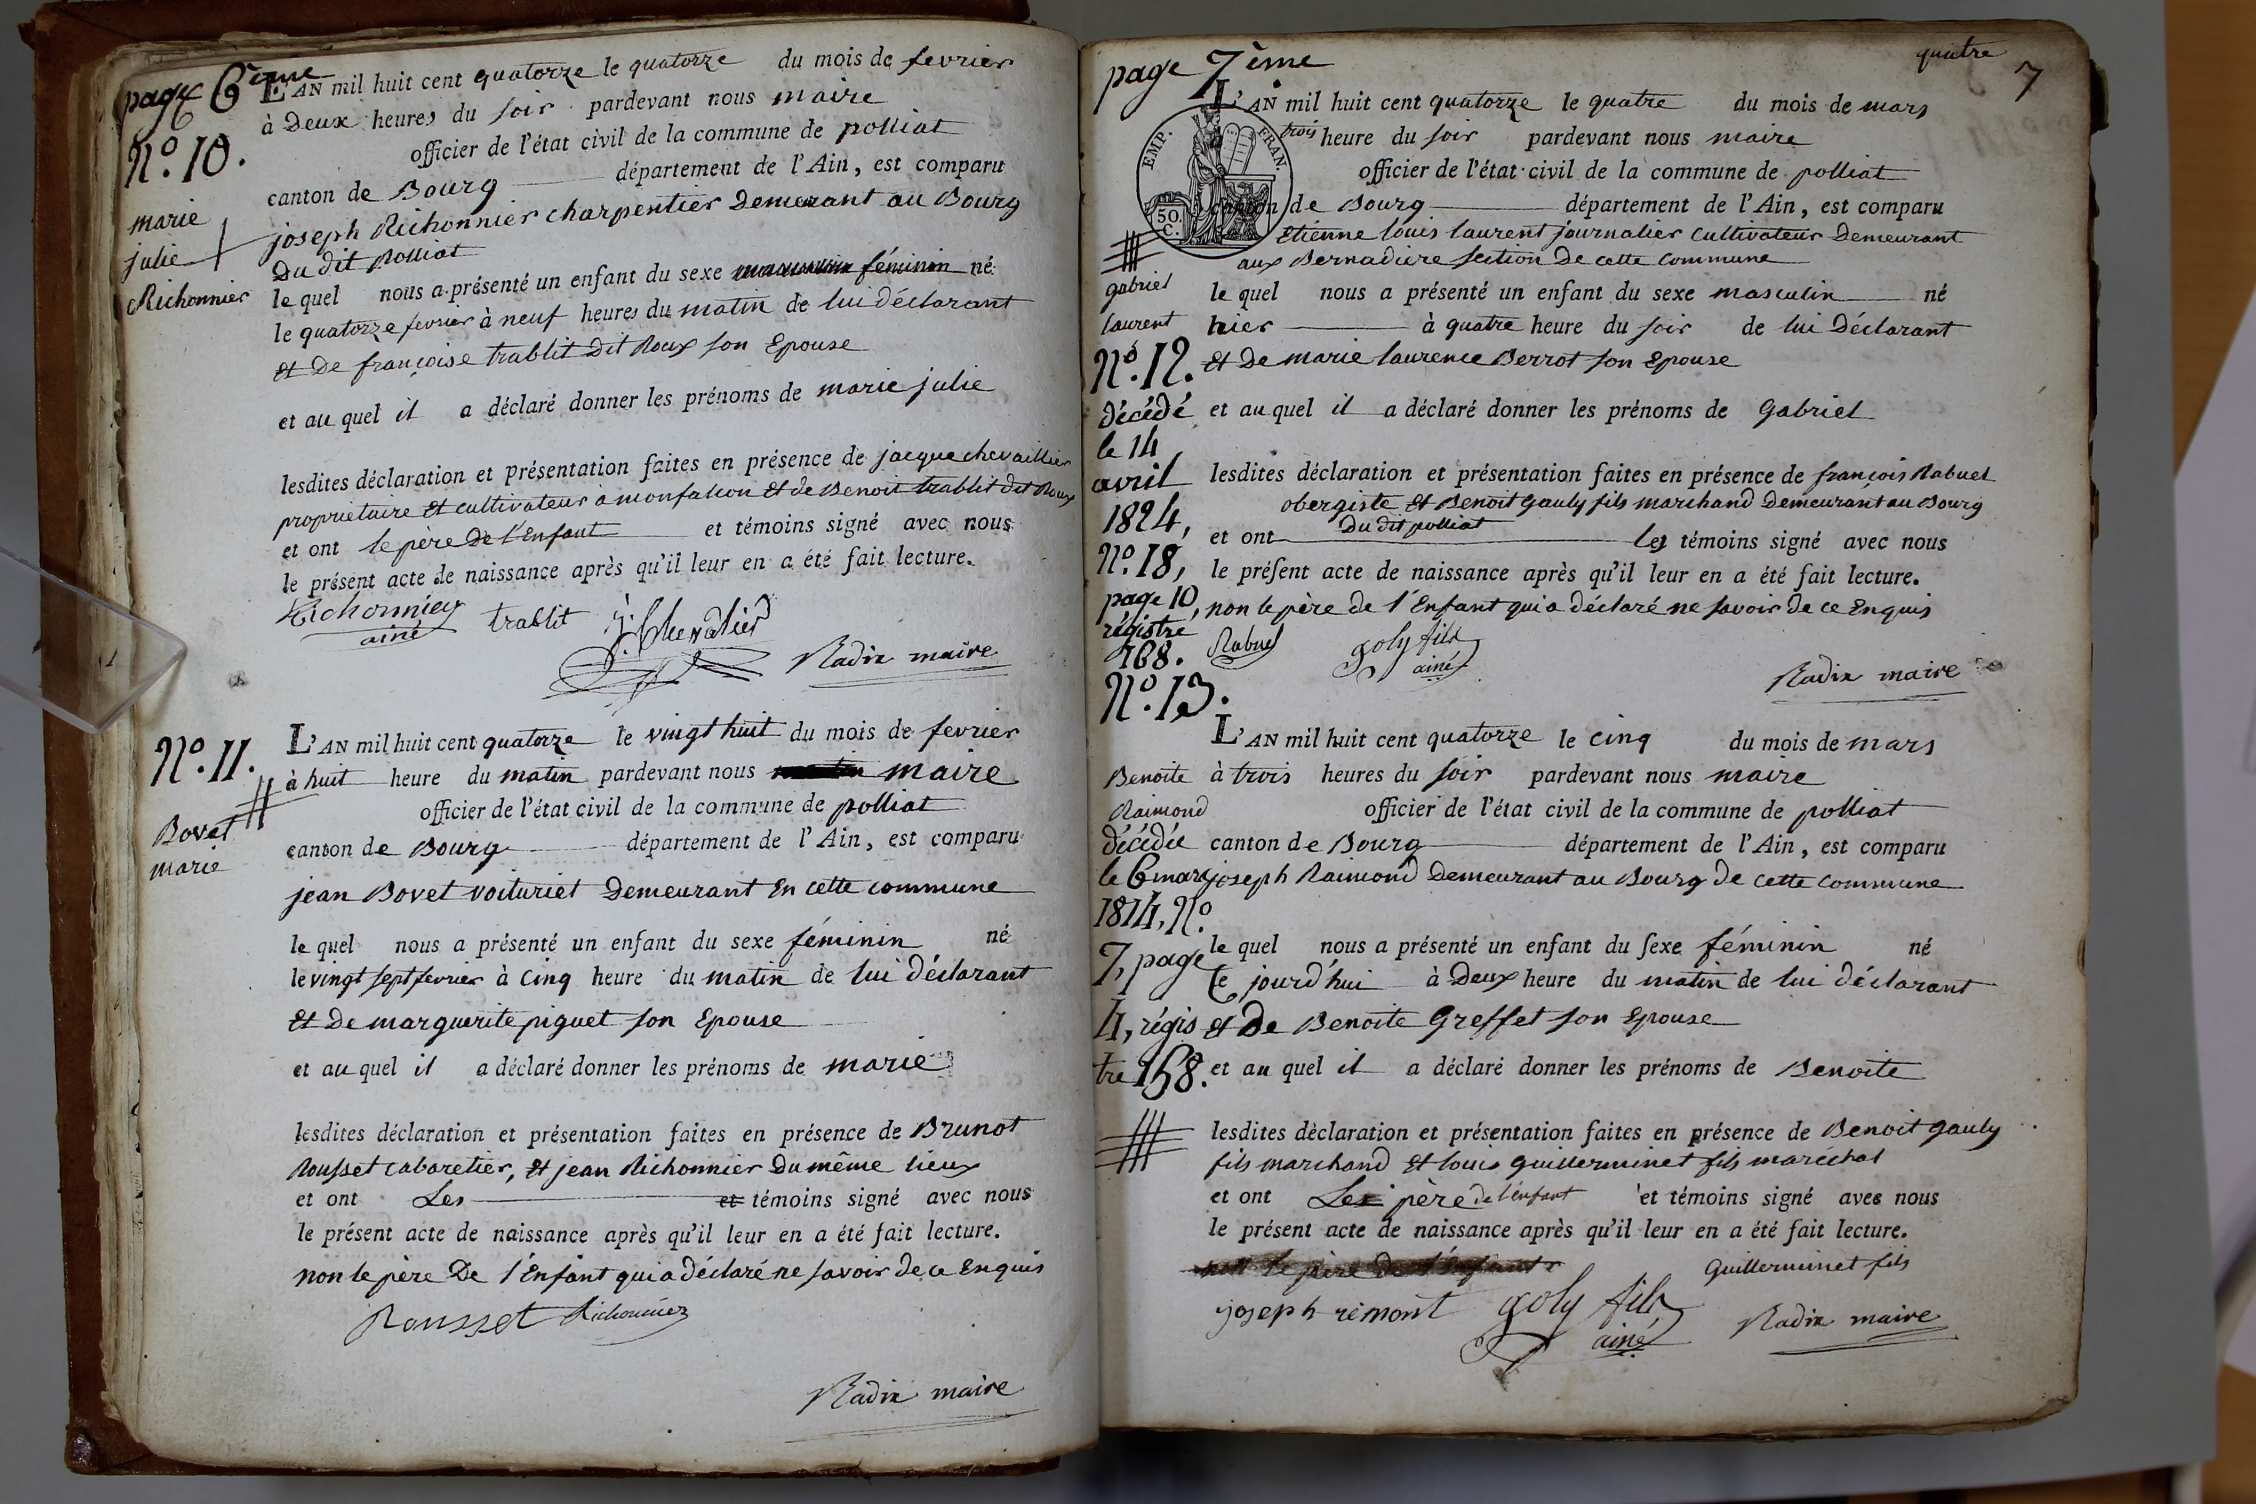 page 6ème
L'AN mil huit cent quatorze le quatorze du mois de fevrier
à Deux heures du soir pardevant nous maire
officier de l'état civil de la commune de polliat
N.o 10.
canton de Bourg département de l'Ain, est comparu
marie
julie
Richonnier
joseph Richonnier charpentier Demeurant au Bourg
Du dit polliat
le quel nous a présenté un enfant du sexe féminin né
le quatorze fevrier à neuf heures du matin de lui déclarant
et De françoise trablit dit Roux son Epouse
et au quel il a déclaré donner les prénoms de marie julie
lesdites déclaration et présentation faites en présence de jacque chevaillier
propriétaire et cultivateur a monfalcon et de Benoit trablit dit Roux
et ont le père de l'Enfant et témoins signé avec nous
le présent acte de naissance après qu'il leur en a été fait lecture.
Richonnier trablit J. Chevalier
ainé
Radix maire
N.o 11.
Bovet
marie
L'AN mil huit cent quatorze le vingt huit du mois de fevrier
à huit heure du matin pardevant nous maire
officier de l'état civil de la commune de polliat
canton de Bourg département de l'Ain, est comparu
jean Bovet voiturier Demeurant En cette commune
le quel nous a présenté un enfant du sexe féminin né
le vingt sept fevrier à cinq heure du matin de lui déclarant
et De marguerite piguet son Epouse
et au quel il a déclaré donner les prénoms de marie
lesdites déclaration et présentation faites en présence de Brunot
Rousset cabaretier, et jean Richonnier Du même lieux
et ont Les et témoins signé avec nous
le présent acte de naissance après qu'il leur en a été fait lecture.
non le père De l'Enfant qui a déclaré ne savoir de ce Enquis
Rousset Richonnier
Radix maire
page 7ème
quatre
7
L'AN mil huit cent quatorze le quatre du mois de mars
trois heure du soir pardevant nous maire
officier de l'état civil de la commune de polliat
EMP. FRAN.
50.
C.
canton de Bourg département de l'Ain, est comparu
Etienne louis laurent journalier cultivateur Demeurant
aux Bernadiere section De cette commune
gabriel
laurent
N.o 12.
décédé
le 14
avril
1824,
N.o 18,
page 10,
régistre
168.
le quel nous a présenté un enfant du sexe masculin né
hier à quatre heure du soir de lui Déclarant
et De marie laurence Berrot son Epouse
et au quel il a déclaré donner les prénoms de gabriel
lesdites déclaration et présentation faites en présence de françois Rabuel
obergiste et Benoit gauly fils marchand Demeurant au Bourg
Du dit polliat
et ont les témoins signé avec nous
le présent acte de naissance après qu'il leur en a été fait lecture.
non le père de l'Enfant qui a déclaré ne savoir de ce Enquis
Rabuel goly fils
ainé
Radix maire
N.o 13.
Benoite
Raimond
décédée
le 6 mars
1814, N.o
7, page
4, régis
tre 158.
L'AN mil huit cent quatorze le cinq du mois de mars
à trois heures du soir pardevant nous maire
officier de l'état civil de la commune de polliat
canton de Bourg département de l'Ain, est comparu
joseph Raimond Demeurant au Bourg de cette commune
le quel nous a présenté un enfant du sexe féminin né
ce jourd'hui à Deux heure du matin de lui déclarant
et De Benoite Greffet son Epouse
et au quel il a déclaré donner les prénoms de Benoite
lesdites déclaration et présentation faites en présence de Benoit gauly
fils marchand et louis guillerminet fils maréchal
et ont Les père de l'enfant et témoins signé avec nous
le présent acte de naissance après qu'il leur en a été fait lecture.
non le père de l'Enfant
Guillerminet fils
joseph remont goly fils
ainé
Radix maire